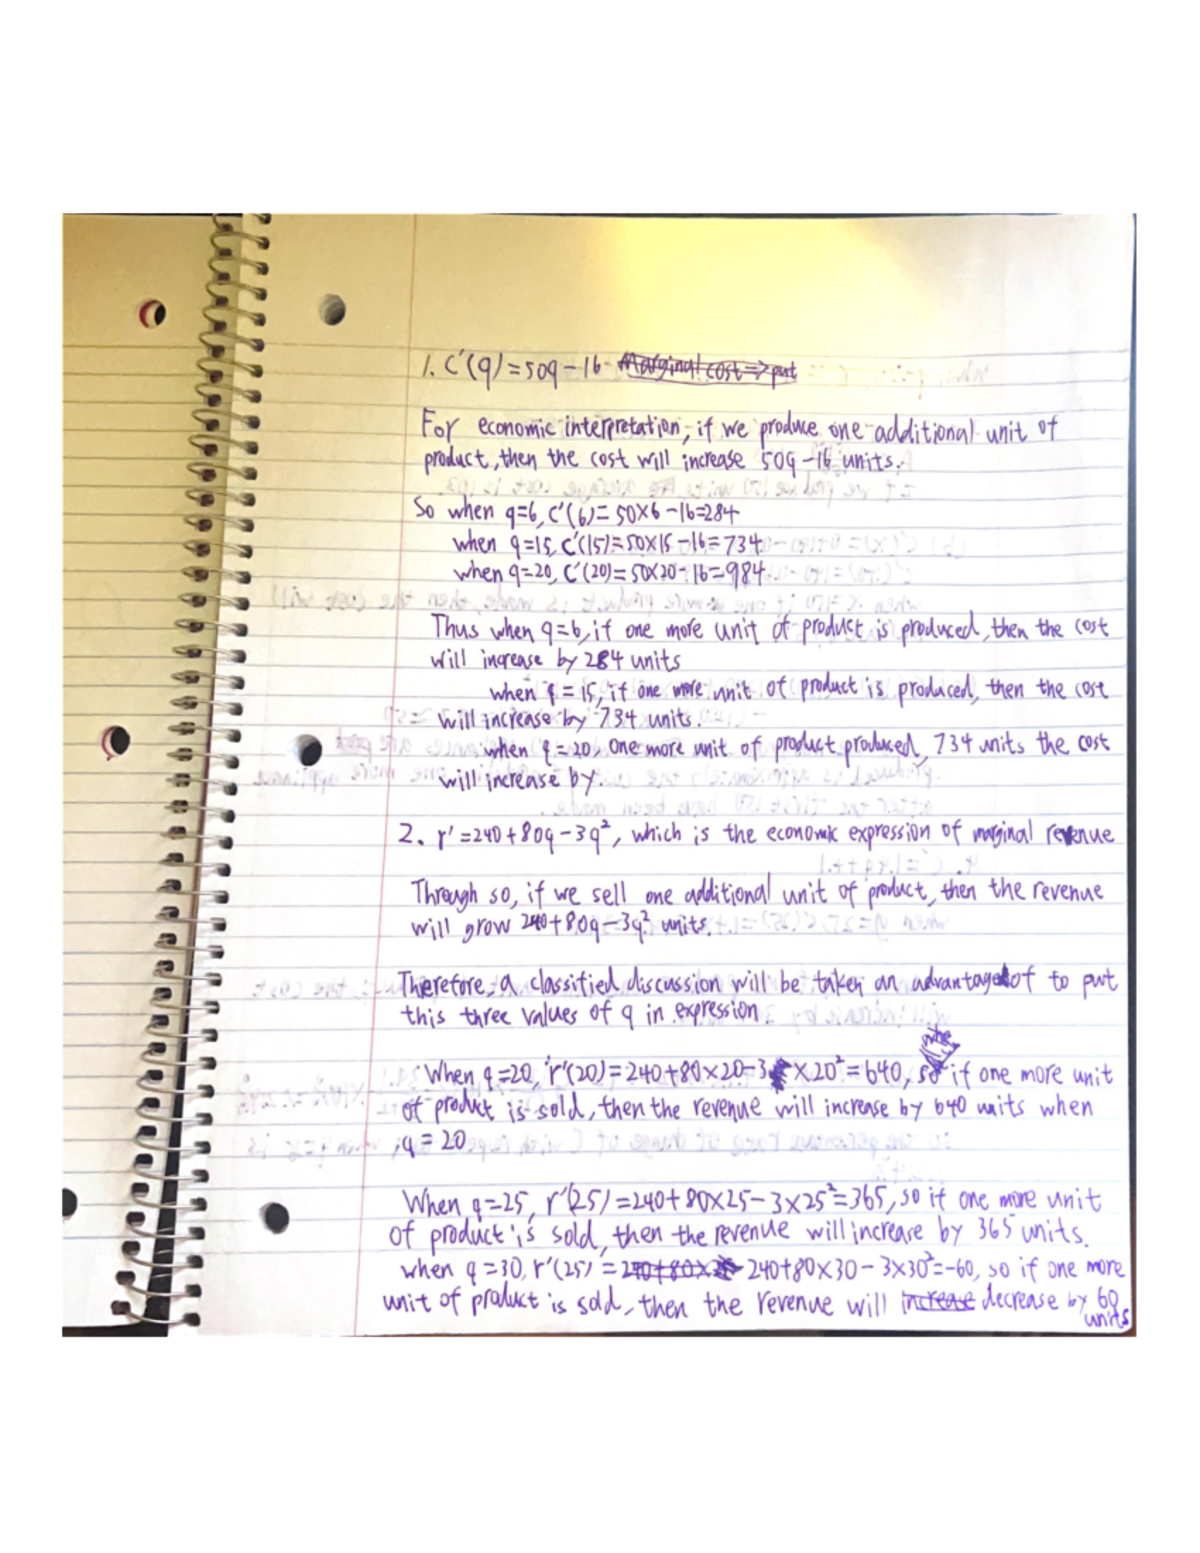 1. C'(q)=50q-16 Marginal cost => put
For economic interpretation, if we produce one additional unit of
product, then the cost will increase 50q-16 units.
So when q=6, C'(6)=50×6-16=284
when q=15, C'(15)=50×15-16=734
when q=20, C'(20)=50×20-16=984
Thus when q=6, if one more unit of product is produced, then the cost
will increase by 284 units
when q=15, if one more unit of product is produced, then the cost
will increase by 734 units.
when q=20, one more unit of product produced, 734 units the cost
will increase by.
2. r'=240+80q-3q², which is the economic expression of marginal revenue
Through so, if we sell one additional unit of product, then the revenue
will grow 240+80q-3q² units.
Therefore, a classified discussion will be taken an advantage of to put
this three values of q in expression.
When q=20, r'(20)=240+80×20-3×20²=640, so if one more unit
of product is sold, then the revenue will increase by 640 units when
q=20
When q=25, r'(25)=240+80×25-3×25²=365, so if one more unit
of product is sold, then the revenue will increase by 365 units.
when q=30, r'(25)=240+80× 240+80×30-3×30²=-60, so if one more
unit of product is sold, then the revenue will increase decrease by 60
units